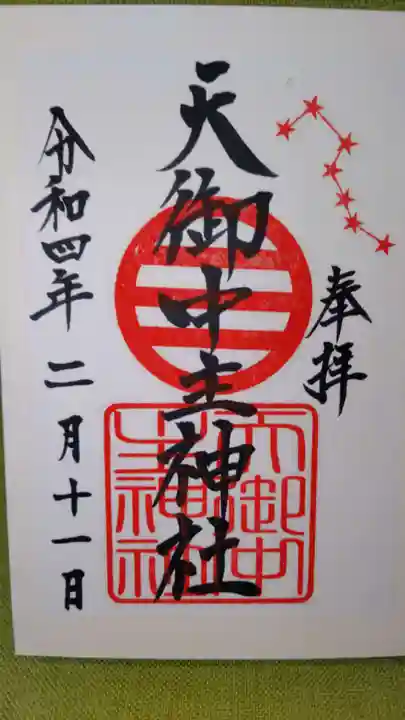 奉拝
天御中主神社
天御中
主神社
令和四年 二月十一日